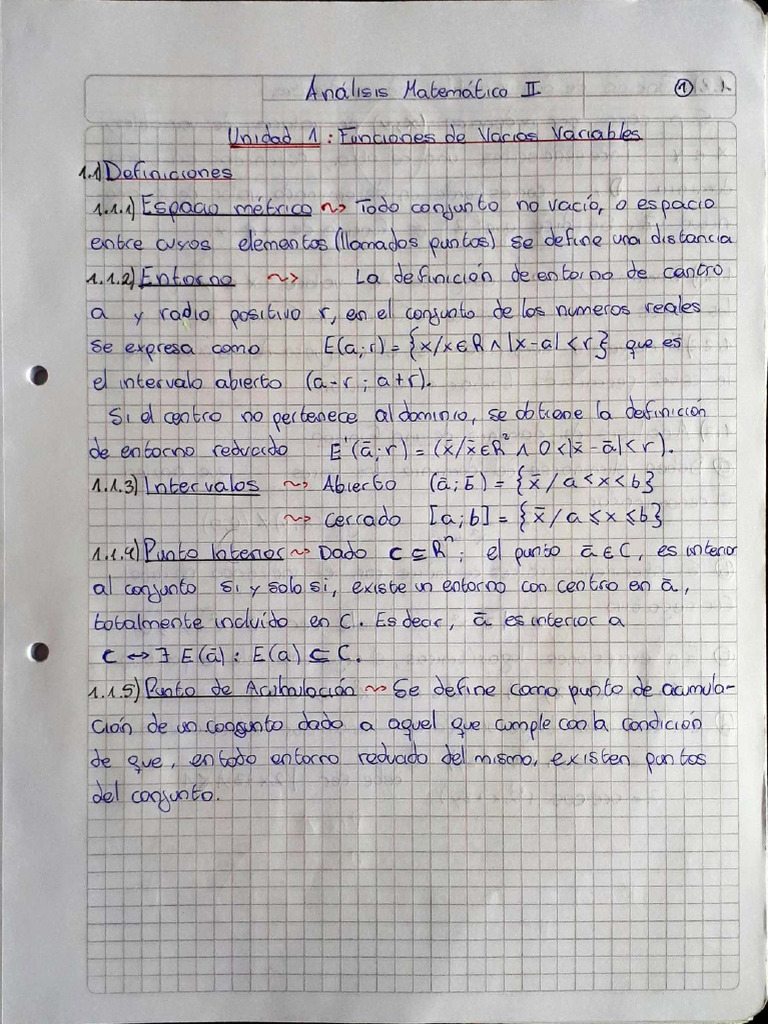 Análisis Matemático II
1
Unidad 1: Funciones de Varias Variables
1.1) Definiciones
1.1.1) Espacio métrico ~> Todo conjunto no vacío, o espacio
entre cuyos elementos (llamados puntos) se define una distancia
1.1.2) Entorno ~> La definición de entorno de centro
a y radio positivo r, en el conjunto de los numeros reales
se expresa como E(a;r) = {x/x∈R ∧ |x-a| < r} que es
el intervalo abierto (a-r ; a+r).
Si el centro no pertenece al dominio, se obtiene la definición
de entorno reducido E'(ā;r) = (x̄/x̄∈R² ∧ 0<|x̄-ā|<r).
1.1.3) Intervalos ~> Abierto (ā;b̄) = {x̄ / a<x<b}
~> cerrado [a;b] = {x̄/a≤x≤b}
1.1.4) Punto Interior ~> Dado C⊆Rⁿ; el punto ā∈C, es interior
al conjunto si y solo si, existe un entorno con centro en ā,
totalmente incluído en C. Es decir, ā es interior a
C ↔ ∃ E(ā) : E(a) ⊆ C.
1.1.5) Punto de Acumulación ~> Se define como punto de acumula-
ción de un conjunto dado a aquel que cumple con la condición
de que, en todo entorno reducido del mismo, existen puntos
del conjunto.